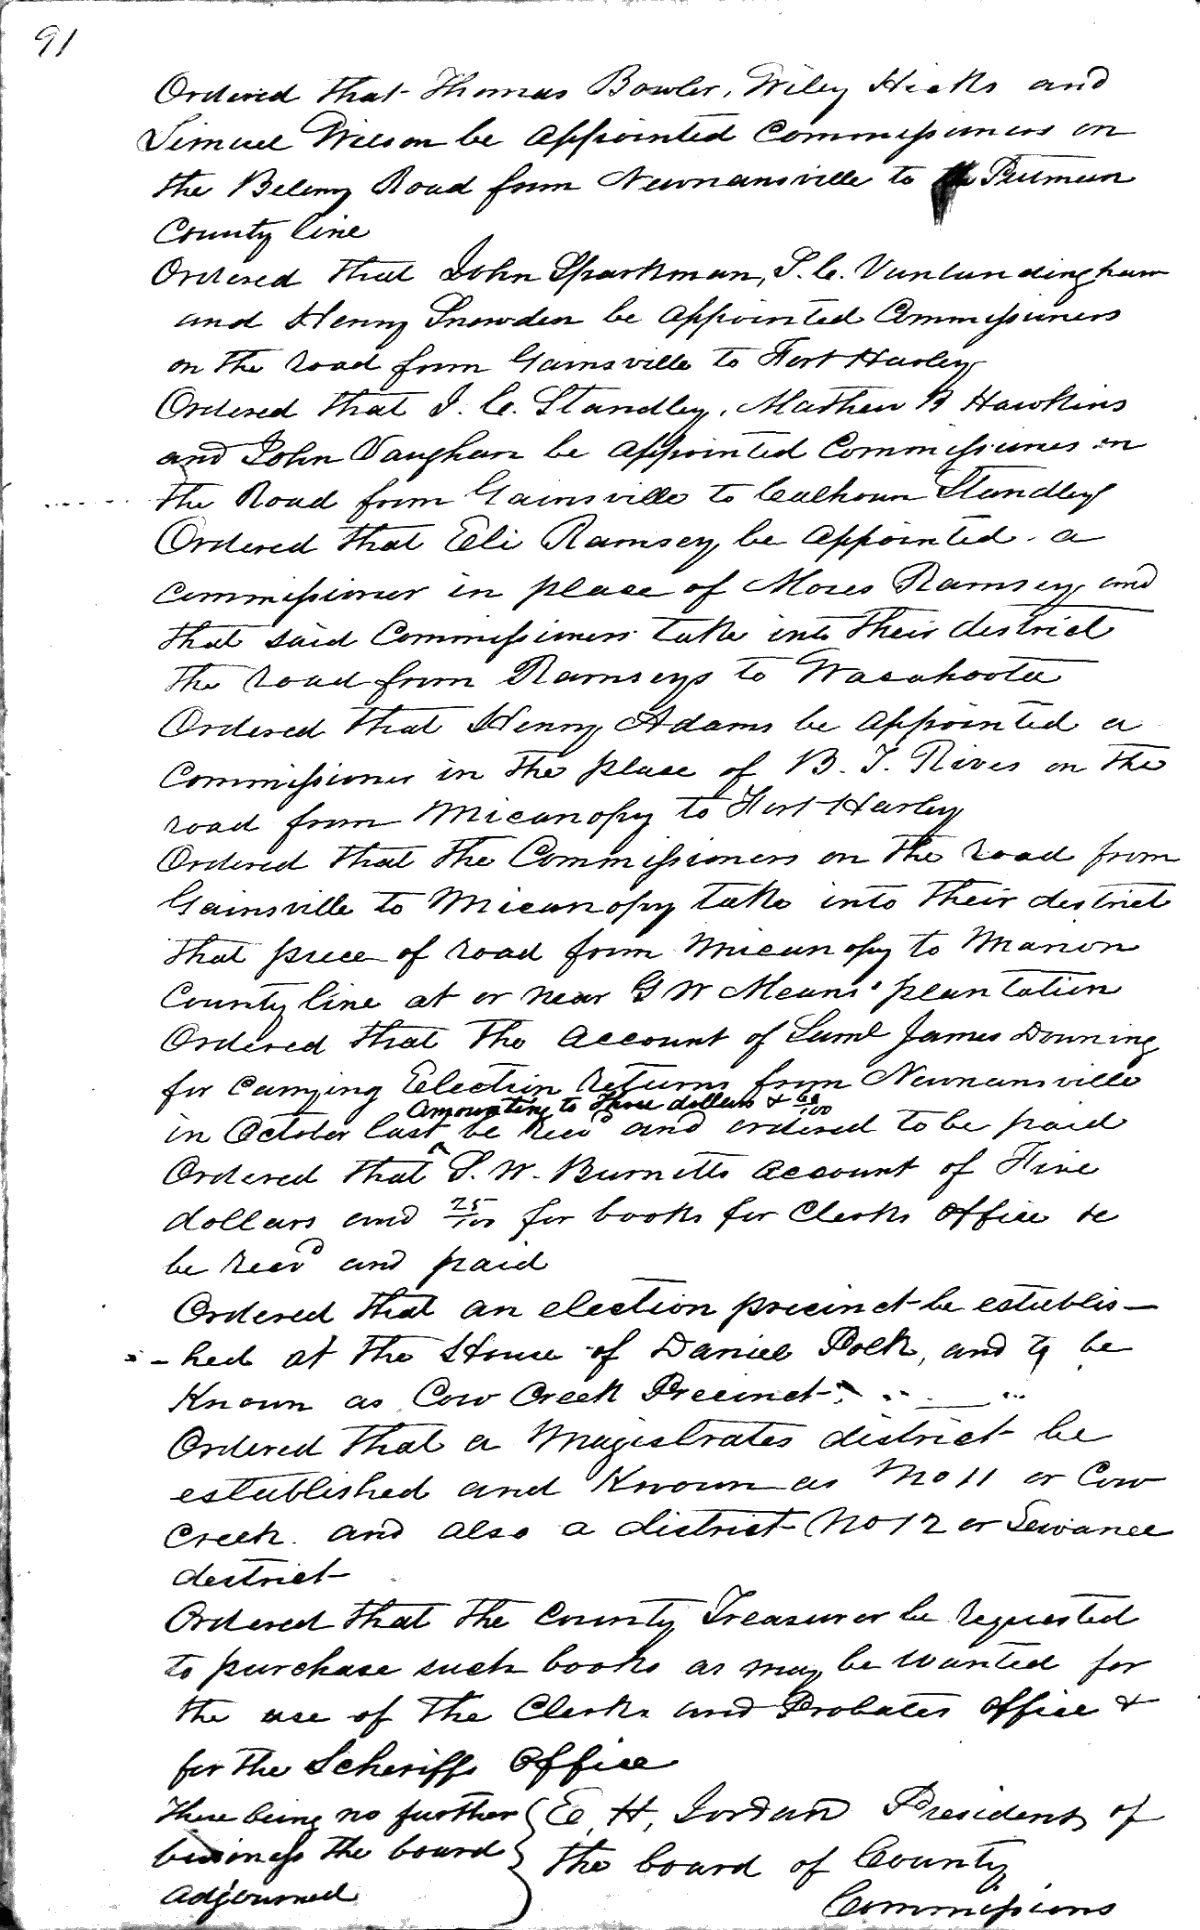 91
Ordered that Thomas Bowler, Wiley Hicks and
Simuel Wilson be appointed Commissioners on
the Belemy Road from Newnansville to Putman
County line
Ordered that John Sparkman, S. C. Vanlandingham
and Henry Snowden be appointed Commissioners
on the road from Gainsville to Fort Harley
Ordered that J. C. Standley, Mathew B Hawkins
and John Vaughan be appointed Commissiones on
the Road from Gainsville to Calhoun Standley
Ordered that Eli Ramsey be appointed a
commissioner in place of Moses Ramsey and
that said Commissioners take into their district
the road from Ramseys to Wacahoota
Ordered that Henry Adams be appointed a
Commissioner in the place of B. T. Rives on the
road from Micanopy to Fort Harley
Ordered that the Commissioners on the road from
Gainsville to Micanopy take into their district
that piece of road from Micanopy to Marion
County line at or near G W Means' plantation
Ordered that the account of Saml James Downing
for carrying Election returns from Newnansville
amounting to Three dollars & /100
in October last be recd and ordered to be paid
Ordered that S. W. Burnetts account of Five
dollars and 25/100 for books for Clerks office &c
be recd and paid
Ordered that an election precinct be establis-
-hed at the House of Daniel Polk, and to be
Known as Cow Creek Precinct.
Ordered that a Magistrates district be
established and Known as No 11 or Cow
Creek. and also a district No 12 or Sewanee
district
Ordered that the County Treasurer be requested
to purchase such books as may be wanted for
the use of the Clerks and Probates office &
for the Scheriffs office
There being no further
business the board
adjourned
E. H. Jordan President of
the board of County
Commissions